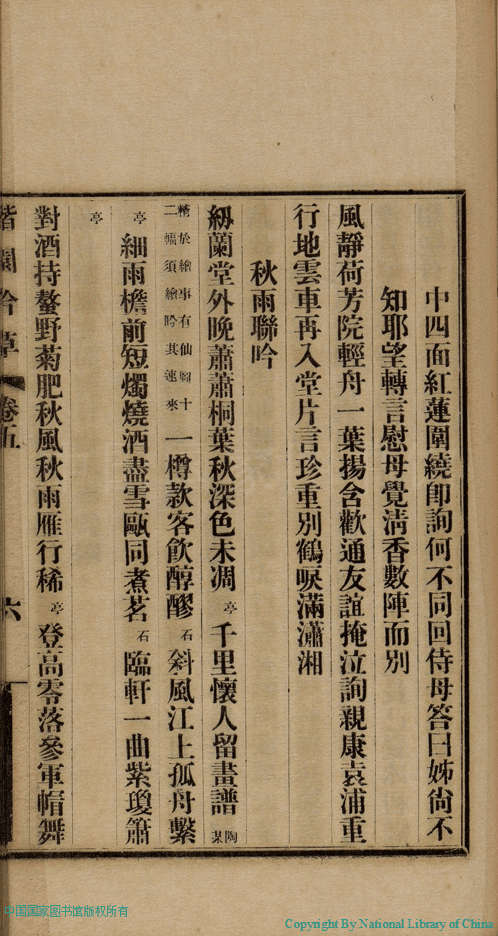 中四面紅蓮圍繞卽詢何不同回侍母答曰姊尙不
知耶望轉言慰母覺淸香數陣而別
風靜荷芳院輕舟一葉揚含歡通友誼掩泣詢親康袁浦重
行地雲車再入堂片言珍重別鶴唳滿瀟湘
秋雨聯吟
紉蘭堂外晚蕭蕭桐葉秋深色未凋亭千里懷人留畫譜陶某
精於繪事有仙十二幅須繪吟其速來一樽款客飮醇醪石斜風江上孤舟繫
亭細雨檐前短燭燒酒盡雪甌同煮茗石臨軒一曲紫瓊簫
亭
對酒持螯野菊肥秋風秋雨雁行稀亭登高零落參軍帽舞
吟草 卷五 六
中国国家图书馆版权所有
Copyright By National Library of China